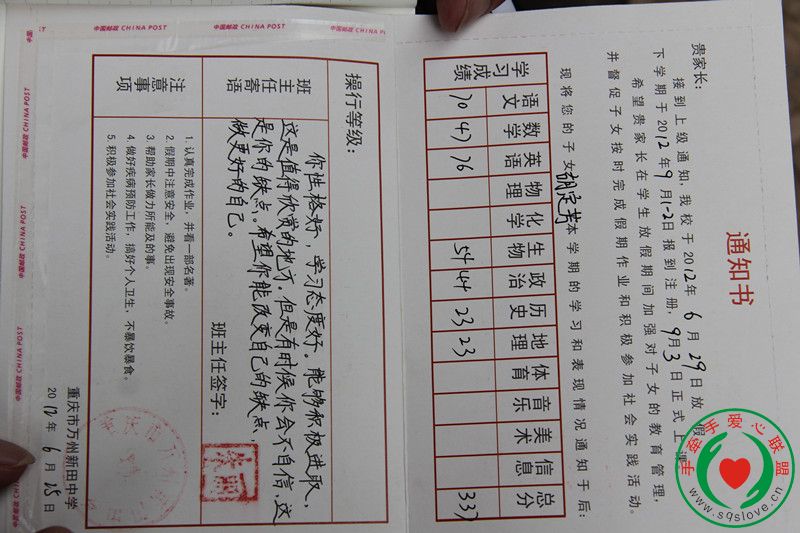 通知书
贵家长：
接到上级通知，我校于2012年6月29日放假，
下学期于2012年9月1-2日报到注册，9月3日正式上课。
希望贵家长在学生放假期间加强对子女的教育管理，
并督促子女按时完成假期作业和积极参加社会实践活动。
现将您的子女胡定芳本学期的学习和表现情况通知于后：
学习成绩
语文 数学 英语 物理 化学 生物 政治 历史 地理 体育 音乐 美术 信息 总分
70 47 76 54 44 23 23 337
操行等级：
班主任寄语
你性格好，学习态度好。能够积极进取，
这是值得欣赏的地方，但是有时候你会不自信，这
是你的缺点。希望你能改变自己的缺点，
做更好的自己。
班主任签字：
注意事项
1. 认真完成作业，并看一部名著。
2. 假期中注意安全，避免出现安全事故。
3. 帮助家长做力所能及的事。
4. 做好疾病预防工作，搞好个人卫生，不暴饮暴食。
5. 积极参加社会实践活动。
重庆市万州新田中学
2012年6月25日
中国邮政 CHINA POST
中国邮政 CHINA POST
中国邮政 CHINA POST
中国邮政 CHINA POST
手牵手爱心联盟
www.sqslove.cn